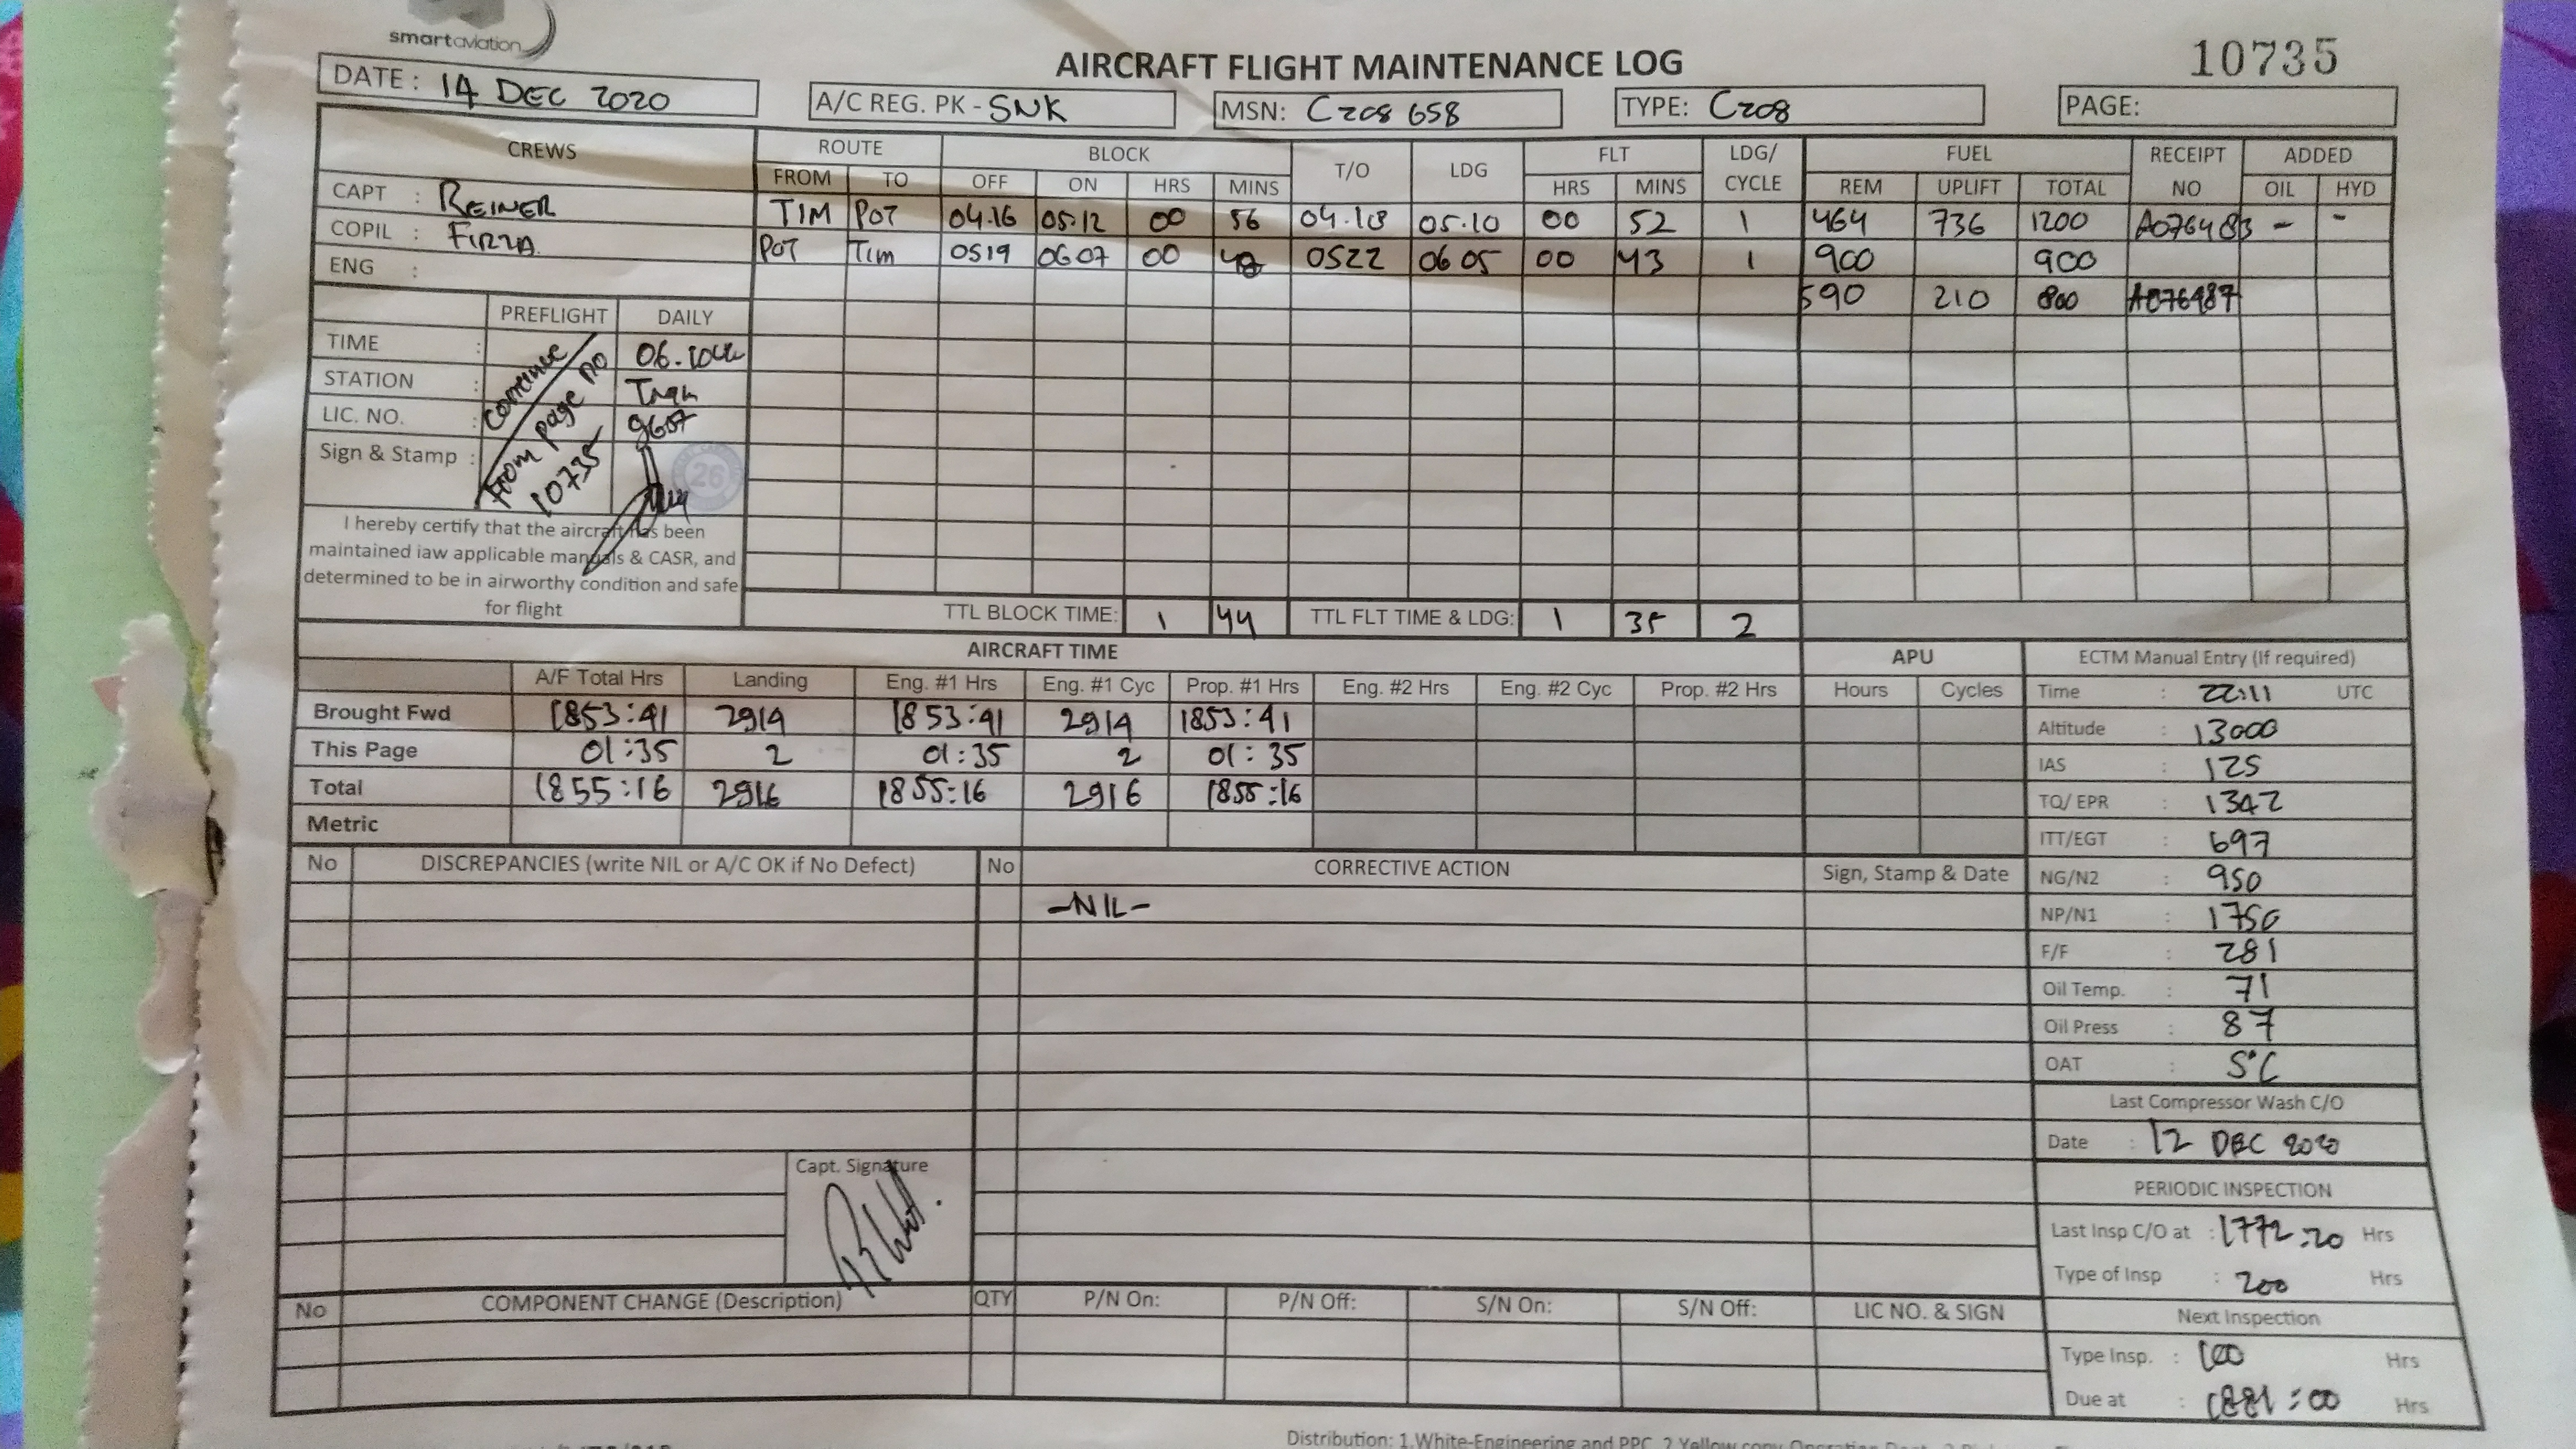 smartaviation
AIRCRAFT FLIGHT MAINTENANCE LOG
10735
DATE : 14 DEC 2020
A/C REG. PK - SNK
MSN: C208 658
TYPE: C208
PAGE:
CREWS ROUTE BLOCK T/O LDG FLT LDG/ CYCLE FUEL RECEIPT NO ADDED
FROM TO OFF ON HRS MINS HRS MINS REM UPLIFT TOTAL OIL HYD
CAPT : REINER
COPIL : FIRZA
ENG :
TIM POT 04.16 05.12 00 56 04.18 05.10 00 52 1 464 736 1200 - -
POT Tim 0519 0607 00 48 0522 0605 00 43 1 900 900
590 210 800 A076487
PREFLIGHT DAILY
TIME :
STATION :
LIC. NO. : 9607
Sign & Stamp :
continue
from page no
10735
26
I hereby certify that the aircraft has been
maintained iaw applicable manuals & CASR, and
determined to be in airworthy condition and safe
for flight
TTL BLOCK TIME: 1 44 TTL FLT TIME & LDG: 1 35 2
AIRCRAFT TIME APU
A/F Total Hrs Landing Eng. #1 Hrs Eng. #1 Cyc Prop. #1 Hrs Eng. #2 Hrs Eng. #2 Cyc Prop. #2 Hrs Hours Cycles
Brought Fwd 1853:41 2914 1853:41 2914 1853:41
This Page 01:35 2 01:35 2 01:35
Total 1855:16 2916 1855:16 2916 1855:16
Metric
ECTM Manual Entry (If required)
Time : 22:11 UTC
Altitude : 13000
IAS : 125
TQ/ EPR : 1342
ITT/EGT : 697
NG/N2 : 950
NP/N1 : 1750
F/F : 281
Oil Temp. : 71
Oil Press : 87
OAT : 5°C
Last Compressor Wash C/O
Date : 12 DEC 2020
PERIODIC INSPECTION
Last Insp C/O at : 1772:20 Hrs
Type of Insp : 200 Hrs
Next Inspection
Type Insp. : 100 Hrs
Due at : 1881:00 Hrs
No DISCREPANCIES (write NIL or A/C OK if No Defect) No CORRECTIVE ACTION Sign, Stamp & Date
-NIL-
Capt. Signature
No COMPONENT CHANGE (Description) QTY P/N On: P/N Off: S/N On: S/N Off: LIC NO. & SIGN
Distribution: 1.White-Engineering and PPC